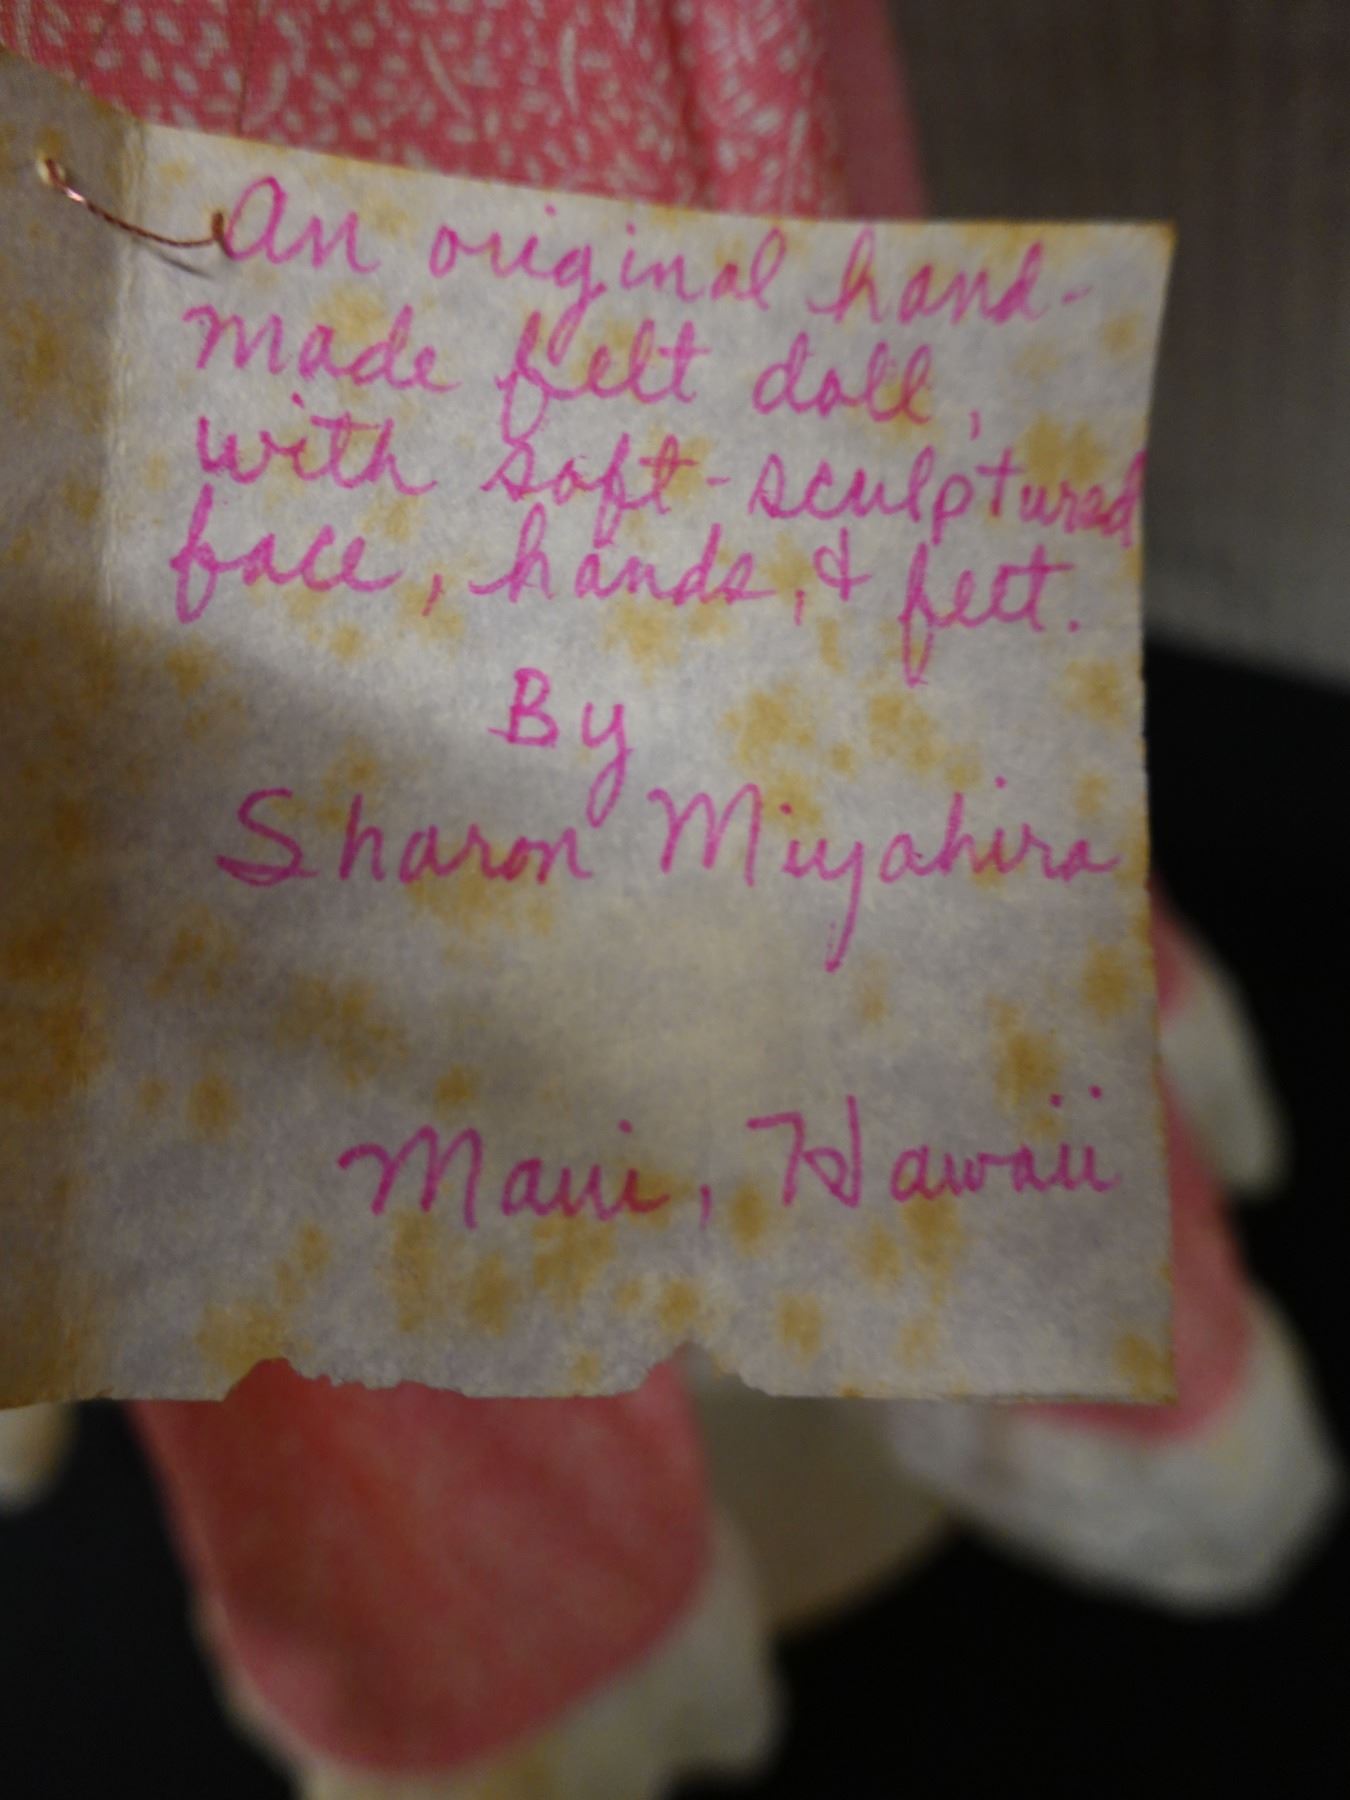 An original hand-
made felt doll,
with soft-sculptured
face, hands, & feet.
By
Sharon Miyahira
Maui, Hawaii